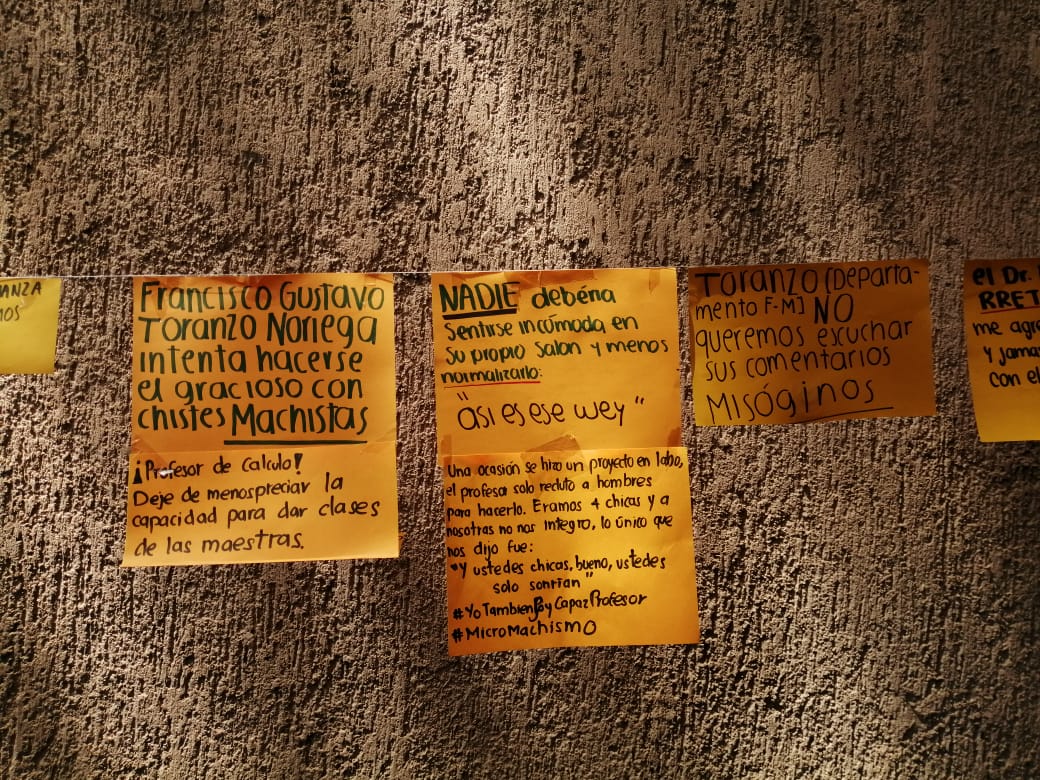 ANZA
MOS
Francisco Gustavo
Toranzo Noriega
intenta hacerse
el gracioso con
chistes Machistas
¡Profesor de Calculo!
Deje de menospreciar la
capacidad para dar clases
de las maestras.
NADIE debería
Sentirse incómoda en
su propio salon y menos
normalizarlo:
"asi es ese wey"
Una ocasión se hizo un proyecto en labo,
el profesor solo recluto a hombres
para hacerlo. Eramos 4 chicas y a
nosotras no nos integro, lo único que
nos dijo fue:
"Y ustedes chicas, bueno, ustedes
solo sonrían"
#YoTambienSoyCapazProfesor
#MicroMachismo
Toranzo [Departa-
mento F-M] NO
queremos escuchar
sus comentarios
Misóginos
el Dr.
RRET
me agre
y jamas
con el